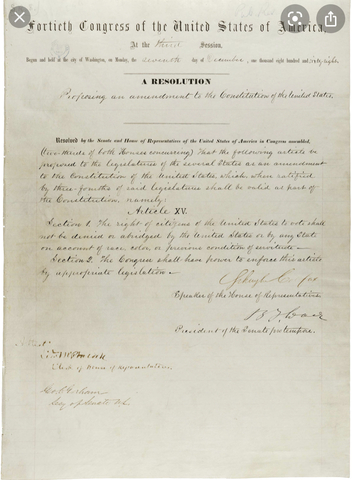 Fortieth Congress of the United States of America;
At the third Session,
Begun and held at the city of Washington, on Monday, the seventh day of December, one thousand eight hundred and sixty-eight
A RESOLUTION
Proposing an amendment to the Constitution of the United States.
Resolved by the Senate and House of Representatives of the United States of America in Congress assembled,
(two-thirds of both Houses concurring) That the following article be
proposed to the legislatures of the several States as an amendment
to the Constitution of the United States, which, when ratified
by three fourths of said legislatures shall be valid as part of
the Constitution, namely:
Article XV.
Section 1. The right of citizens of the United States to vote shall
not be denied or abridged by the United States or by any State
on account of race, color, or previous condition of servitude—
Section 2. The Congress shall have power to enforce this article
by appropriate legislation—
Schuyler Colfax
Speaker of the House of Representatives.
B. F. Wade
President of the Senate pro tempore.
Attest:
Clerk of House of Representatives.
Geo. C. Gorham
Secy of Senate U.S.